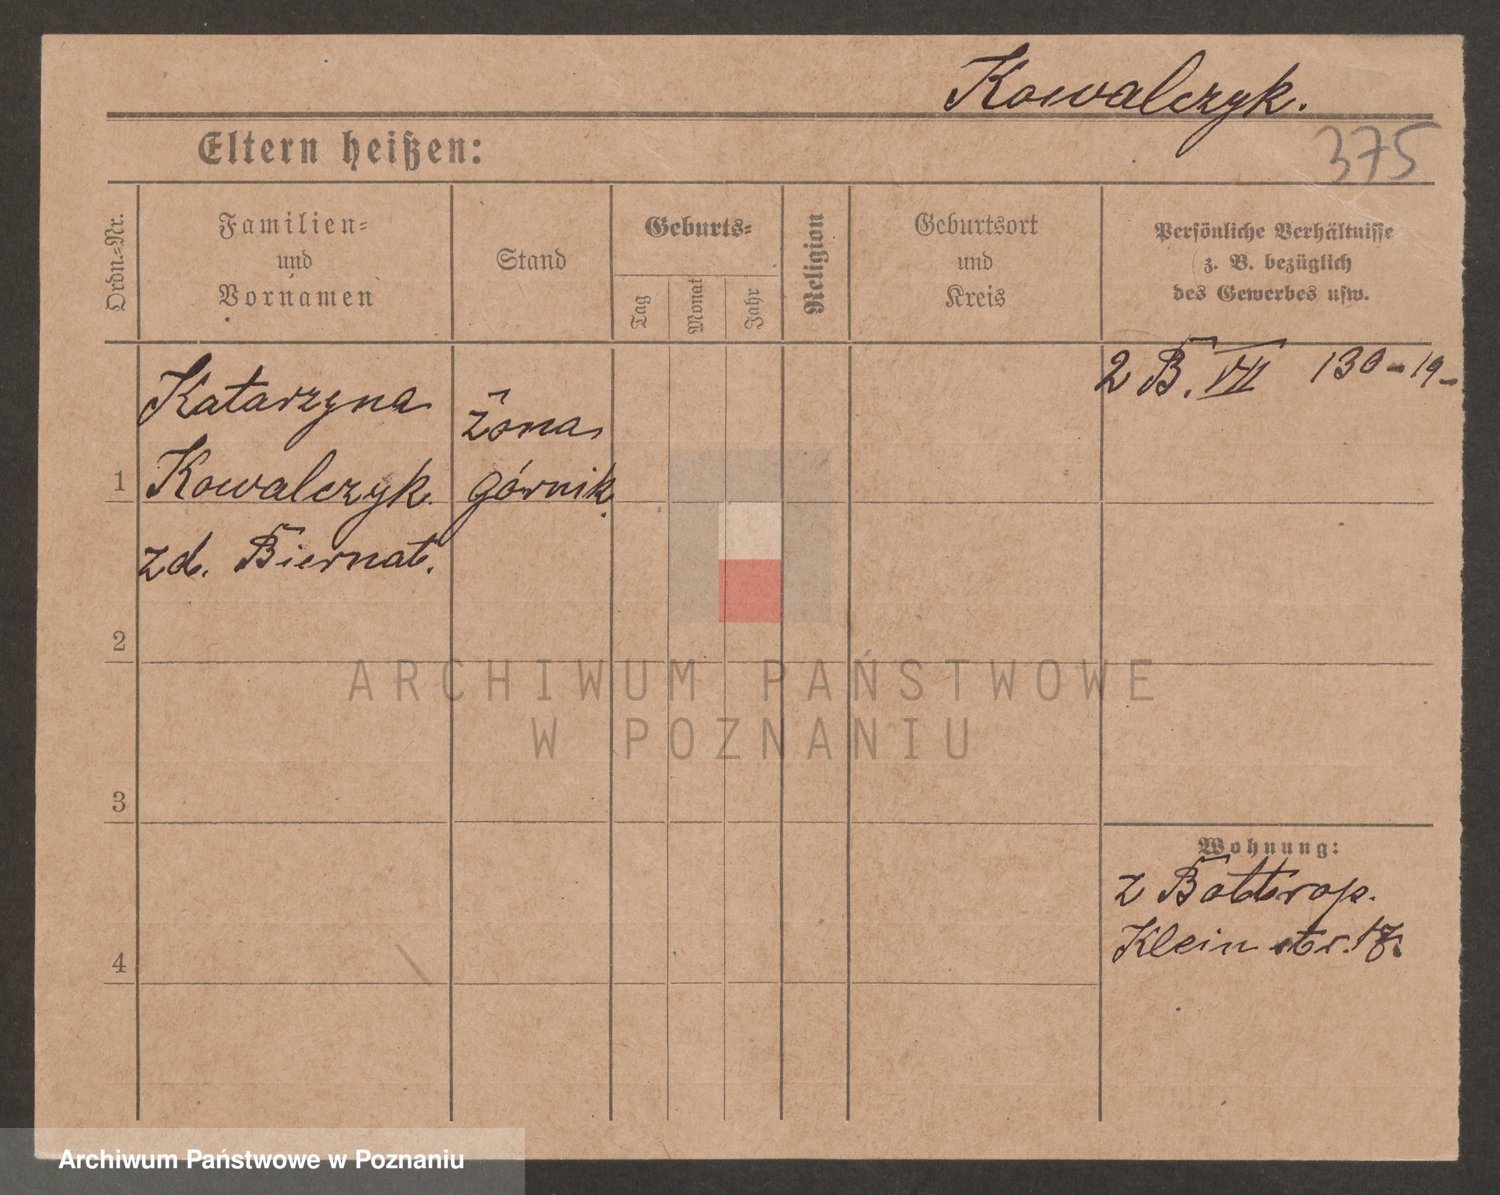 Kowalczyk.
375
Eltern heißen:
Ordn.=Nr.
Familien=
und
Vornamen
Stand
Geburts=
Tag
Monat
Jahr
Religion
Geburtsort
und
Kreis
Persönliche Verhältnisse
z. B. bezüglich
des Gewerbes usw.
2 B. VII 130-19-
Katarzyna
żona
1 Kowalczyk. górnik.
zd. Biernat.
2
ARCHIWUM PAŃSTWOWE
W POZNANIU
3
Wohnung:
z Bottrop.
Klein str. 17.
4
Archiwum Państwowe w Poznaniu